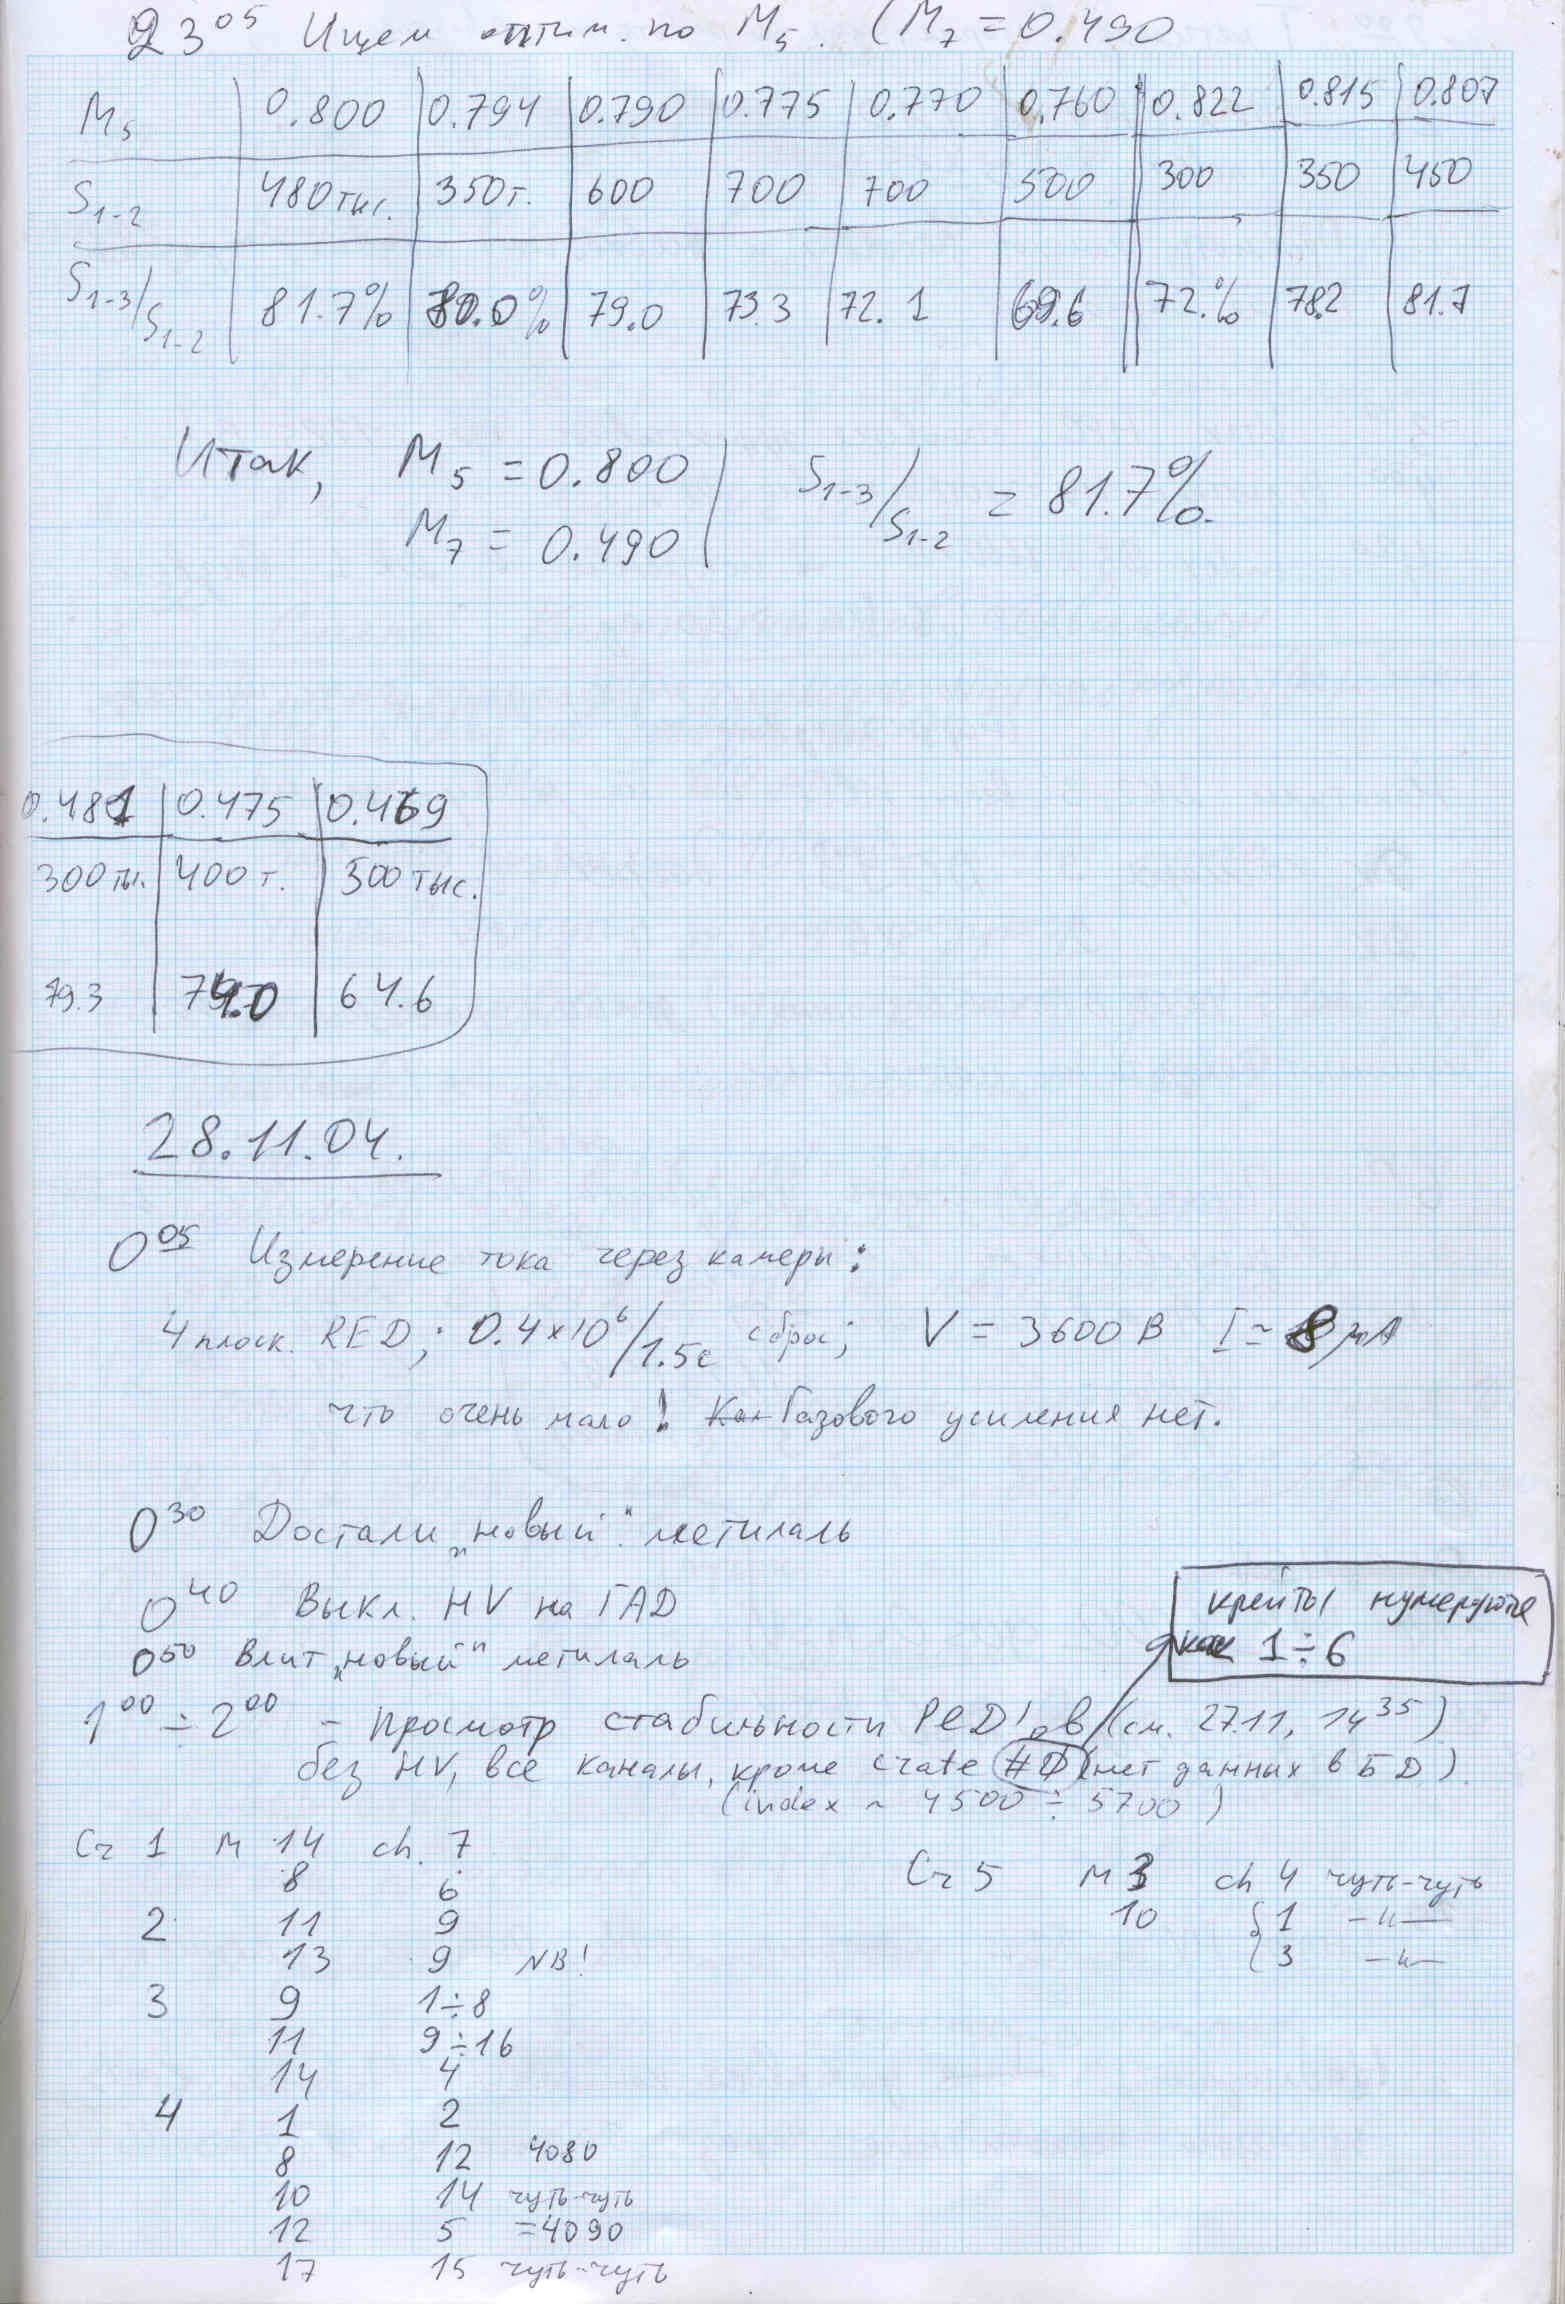 23⁰⁵ Ищем оптим. по M₅. (M₇ = 0.490
M₅ | 0.800 | 0.794 | 0.790 | 0.775 | 0.770 | 0.760 | 0.822 | 0.815 | 0.807
S₁₋₂ | 480 тыс. | 350 т. | 600 | 700 | 700 | 500 | 300 | 350 | 450
S₁₋₃/S₁₋₂ | 81.7% | 80.0% | 79.0 | 73.3 | 72.1 | 69.6 | 72.% | 78.2 | 81.7
Итак, M₅ = 0.800 | S₁₋₃/S₁₋₂ = 81.7%.
M₇ = 0.490
0.481 | 0.475 | 0.469
300 ты. | 400 т. | 500 тыс.
79.3 | 74.0 | 64.6
28.11.04.
0⁰⁵ Измерение тока через камеры:
4 плоск. RED; 0.4×10⁶/1.5с сброс; V = 3600 В I ≃ 8 μA
что очень мало! Газового усиления нет.
0³⁰ Достали „новый" метилаль
0⁴⁰ Выкл. HV на ГАД
крейты нумеруются
как 1÷6
0⁵⁰ Влит „новый" метилаль
1⁰⁰ ÷ 2⁰⁰ – Просмотр стабильности PED'ов (см. 27.11, 14³⁵)
без HV, все каналы, кроме crate #0 (нет данных в БД)
(index ~ 4500 ÷ 5700)
Cr 1 M 14 ch. 7
8 6
2 11 9
13 9 NB!
3 9 1÷8
11 9÷16
14 4
4 1 2
8 12 4080
10 14 чуть-чуть
12 5 =4090
17 15 чуть-чуть
Cr 5 M 3 ch 4 чуть-чуть
10 { 1 –"–
3 –"–